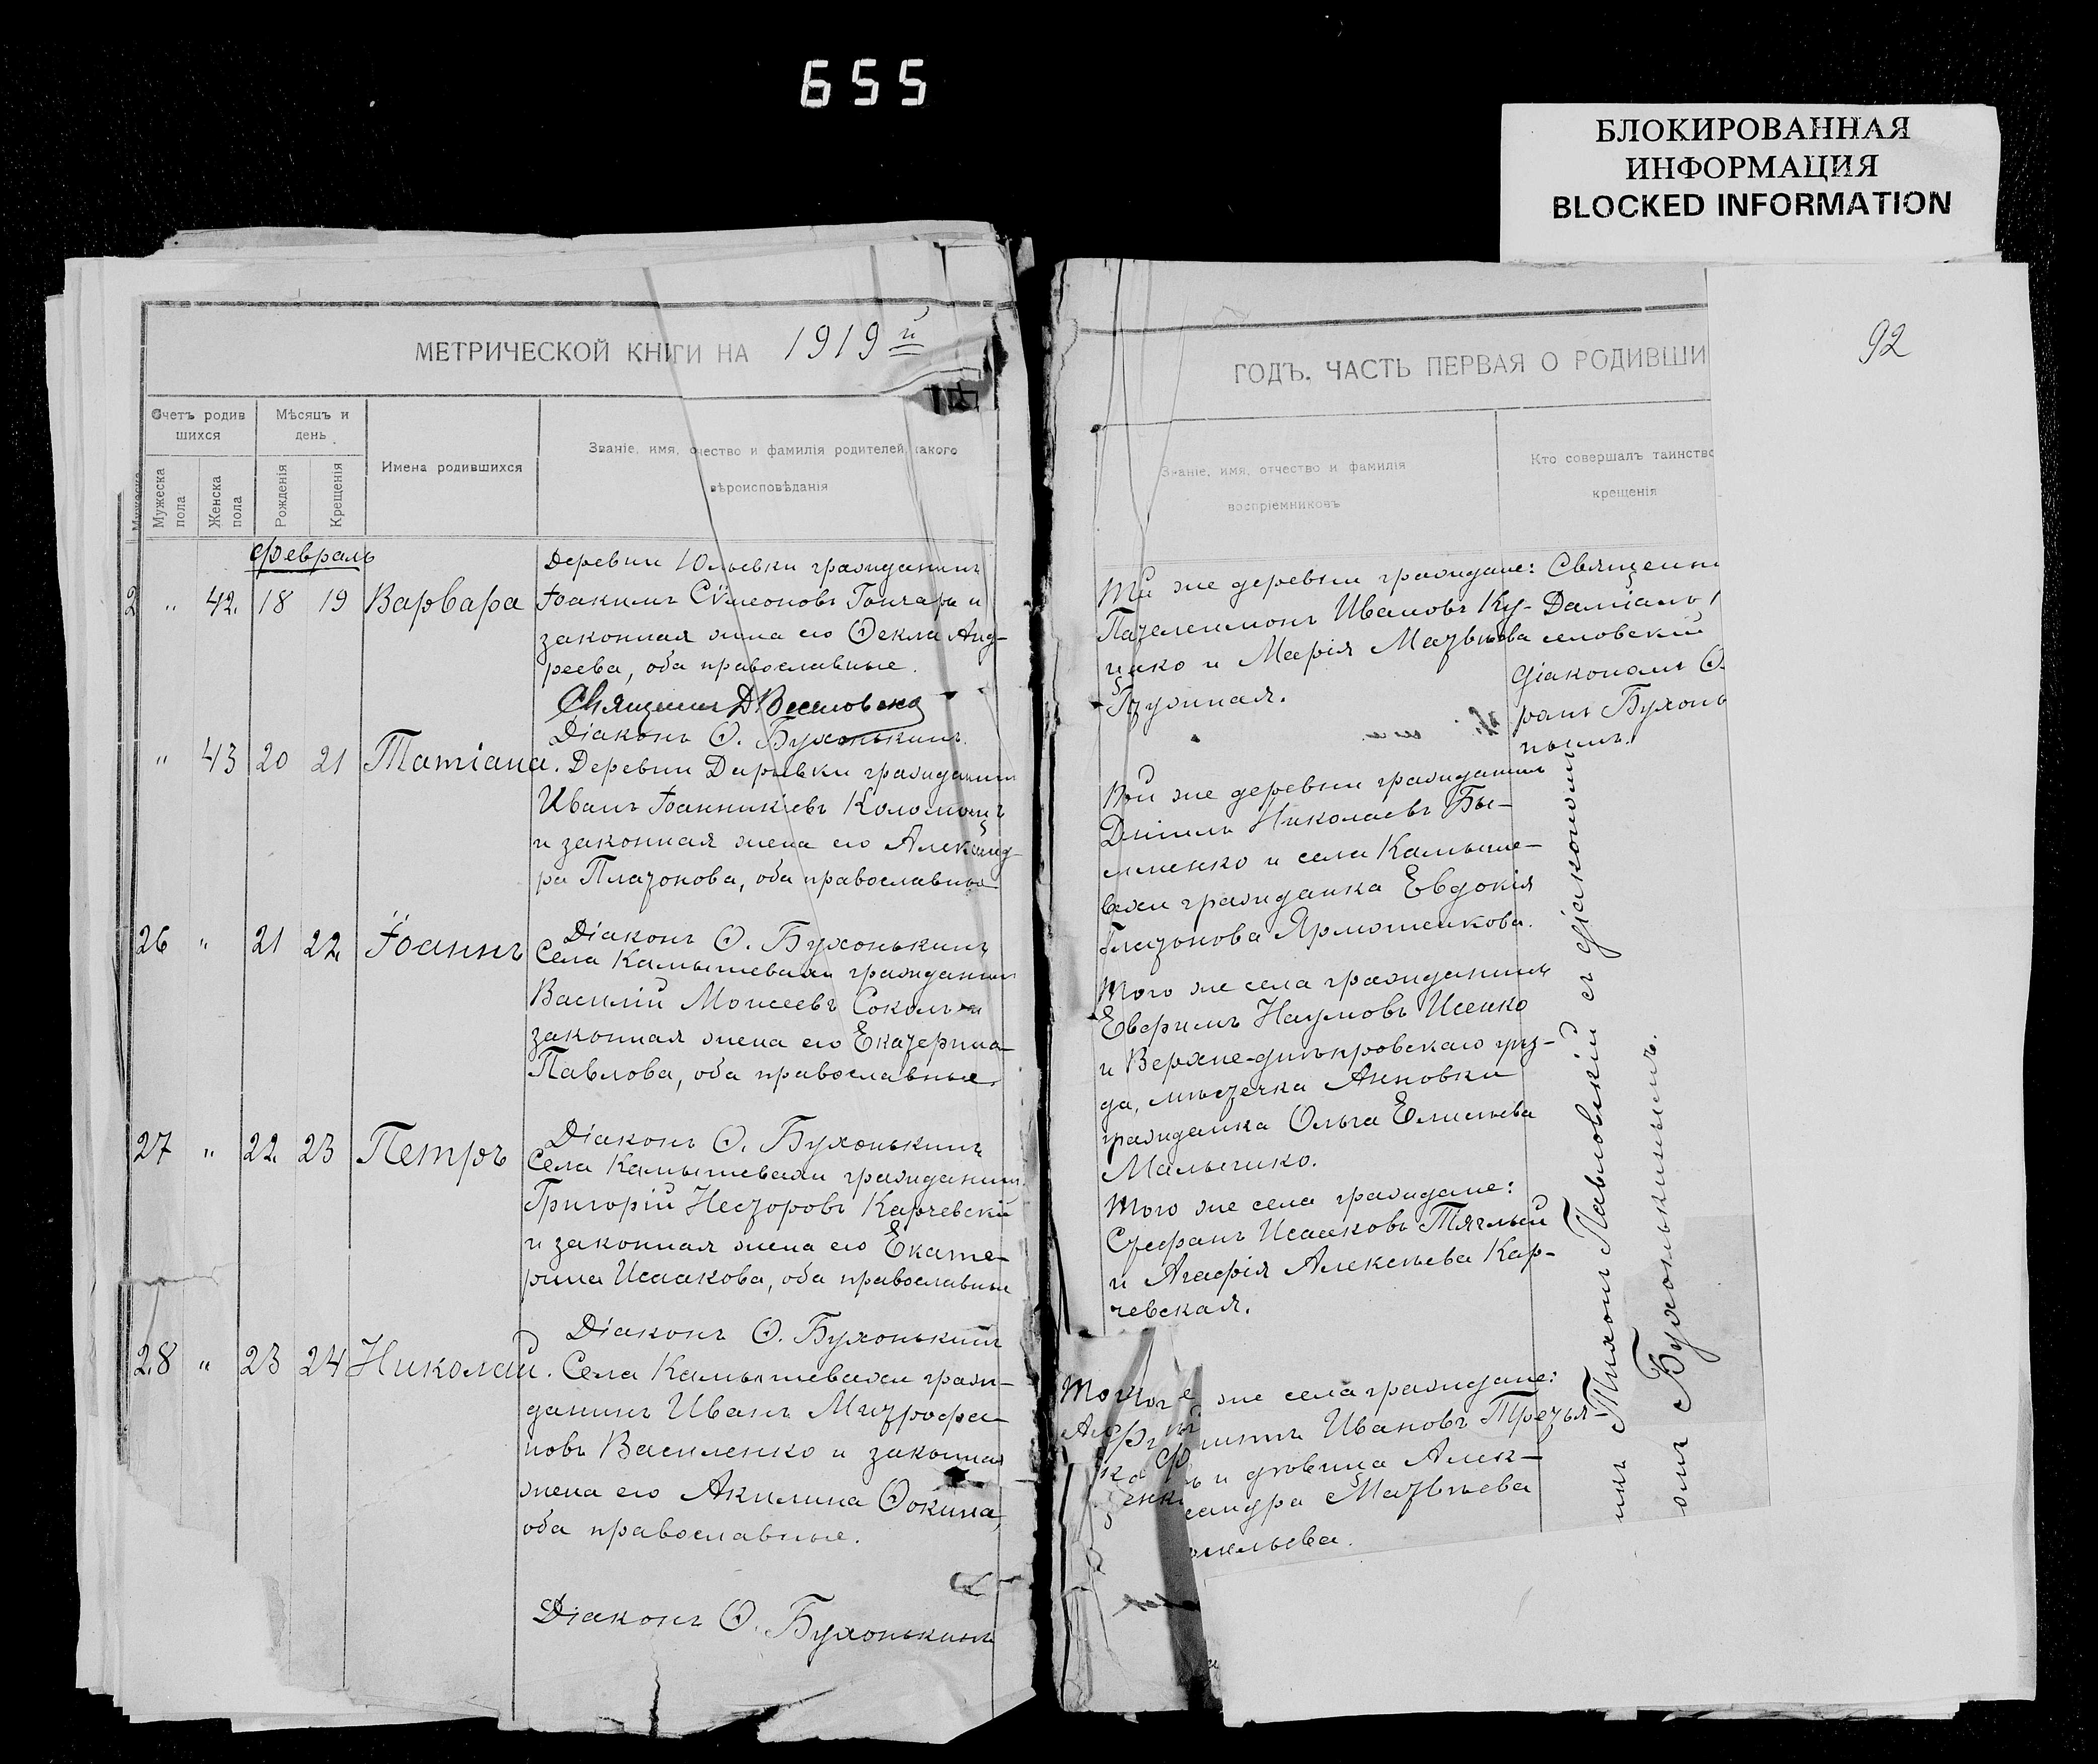 655
БЛОКИРОВАННАЯ
ИНФОРМАЦИЯ
BLOCKED INFORMATION
МЕТРИЧЕСКОЙ КНИГИ НА 1919й
Счетъ родив
шихся
Мѣсяцъ и
день
Имена родившихся
Званіе, имя, отчество и фамилія родителей, какого
вѣроисповѣданія
Мужеска
пола
Женска
пола
Рожденія
Крещенія
Февраль
Деревни Юльевки гражданинъ
2 " 42. 18 19 Варвара Іоакимъ Сѵмеоновъ Гончаръ и
законная жена его Ѳекла Анд-
реева, оба православные.
Діаконъ Ѳ. Бухонькинъ.
" 43 20 21 Татіана. Деревни гражданинъ
Иванъ Іоанникіевъ
и законная жена его Александ-
ра Платонова, оба православные
Діаконъ Ѳ. Бухонькинъ
26 " 21 22 Іоаннъ Села Камышевахи гражданинъ
Василій Моисеевъ Соколъ и
законная жена его Екатерина
Павлова, оба православные.
Діаконъ Ѳ. Бухонькинъ
27 " 22. 23 Петръ Села Камышевахи гражданинъ
Григорій Несторовъ Карчевскій
и законная жена его Екате-
рина Исаакова, оба православные
Діаконъ Ѳ. Бухонькинъ
28 " 23 24 Николай. Села Камышевахи граж-
данинъ Иванъ Митрофа-
новъ Василенко и законная
жена его Акилина Ѳокина,
оба православные.
Діаконъ Ѳ. Бухонькинъ
92
ГОДЪ. ЧАСТЬ ПЕРВАЯ О РОДИВШИ
Званіе, имя, отчество и фамилія
воспріемниковъ
Кто совершалъ таинство
крещенія
Той же деревни граждане: Священни
Пателеимонъ Ивановъ Ку- Даміанъ
цако и Марія Матвѣева
діакономъ Ѳ.
ромъ Бухонь
Той же деревни гражданинъ
Николаевъ
и села Камыше-
вахи гражданка Евдокія
Платонова Ярмошенкова.
Того же села гражданинъ
Наумовъ Исенко
и Верхне-днѣпровскаго уѣз-
да, мѣстечка Анновки
гражданка Ольга Елисѣева
Мальченко.
Того же села граждане:
Стефанъ Исааковъ Тяглый
и Агафія Алексѣева Кар-
чевская.
же села граждане:
Ивановъ Третья-
и дѣвица Алек-
сандра Матвѣева
Тихонъ Павловскій съ діакономъ
Бухонькинымъ.